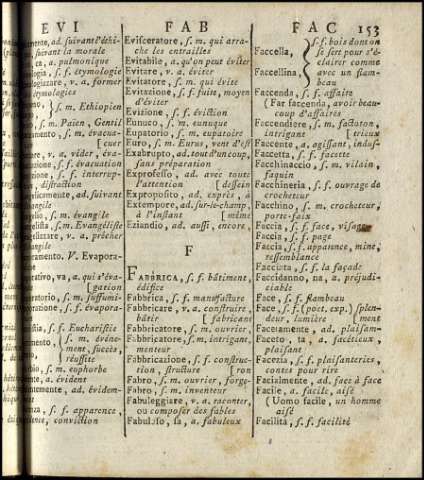 EVI FAB FAC 153
ad. suivant l'éthi-
suivant la morale
ca, a. pulmonique
s. f. étymologie
v. a. former
étymologies
s. m. Ethiopien
s. m. Païen, Gentil
s. m. évacua-
v. a. vider, éva-
s. f. évacuation
s. f. interrup-
distraction
ad. suivant
s. m. évangile
s. m. Evangéliste
v. a. prêcher
évangile
V. Evapora-
va, a. qui s'éva-
[gation
s. m. suffumi-
s. f. évapora-
s. f. Eucharistie
s. m. événe-
ment, succès,
réussite
s. m. euphorbe
a. évident
ad. évidem-
ment
s. f. apparence,
conviction
Evisceratore, s. m. qui arra-
che les entrailles
Evitabile, a. qu'on peut éviter
Evitare, v. a. évicer
Evitatore, s. m. qui évite
Evitazione, s. f. fuite, moyen
d'éviter
Evizione, s. f. éviction
Eunuco, s. m. eunuque
Eupatorio, s. m. eupatoire
Euro, s. m. Eurus, vent d'est
Exabrupto, ad. tout d'un coup,
sans préparation
Exprofesso, ad. avec toute
l'attention [dessein
Exproposito, ad. exprès, à
Extempore, ad. sur-le-champ,
à l'instant [même
Eziandio, ad. aussi, encore,
F
FABBRICA, s. f. bâtiment,
édifice
Fabbrica, s. f. manufacture
Fabbricare, v. a. construire,
bâtir [fabricant
Fabbricatore, s. m. ouvrier,
Fabbricatore, s. m. intrigant,
menteur
Fabbricazione, s. f. construc-
tion, structure [ron
Fabro, s. m. ouvrier, forge-
Fabro, s. m. inventeur
Fabuleggiare, v. a. raconter,
ou composer des fables
Fabuloso, sa, a. fabuleux
Faccella,
Faccellina,
s. f. bois dont on
se sert pour s'é-
clairer comme
avec un flam-
beau
Faccenda, s. f. affaire
(Far faccenda, avoir beau-
coup d'affaires
Faccendiere, s. m. factoton,
intrigant [trieux
Faccente, a. agissant, indus-
Faccetta, s. f. facette
Facchinaccio, s. m. vilain,
faquin
Facchineria, s. f. ouvrage de
crocheteur
Facchino, s. m. crocheteur,
porte-faix
Faccia, s. f. face, visage
Faccia, s. f. page
Faccia, s. f. apparence, mine,
ressemblance
Facciata, s. f. la façade
Faccidanno, na, a. préjudi-
ciable
Face, s. f. flambeau
Face, (s. f. (poet. exp.) splen-
deur, lumière [ment
Facetamente, ad. plaisam-
Faceto, ta, a. facétieux,
plaisant
Facezia, s. f. plaisanteries,
contes pour rire
Facialmente, ad. face à face
Facile, a. facile, aisé
(Uomo facile, un homme
aisé
Facilità, s. f. facilité